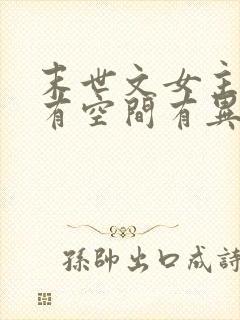 末世文女主
有空間有異
孫帥出口成詩